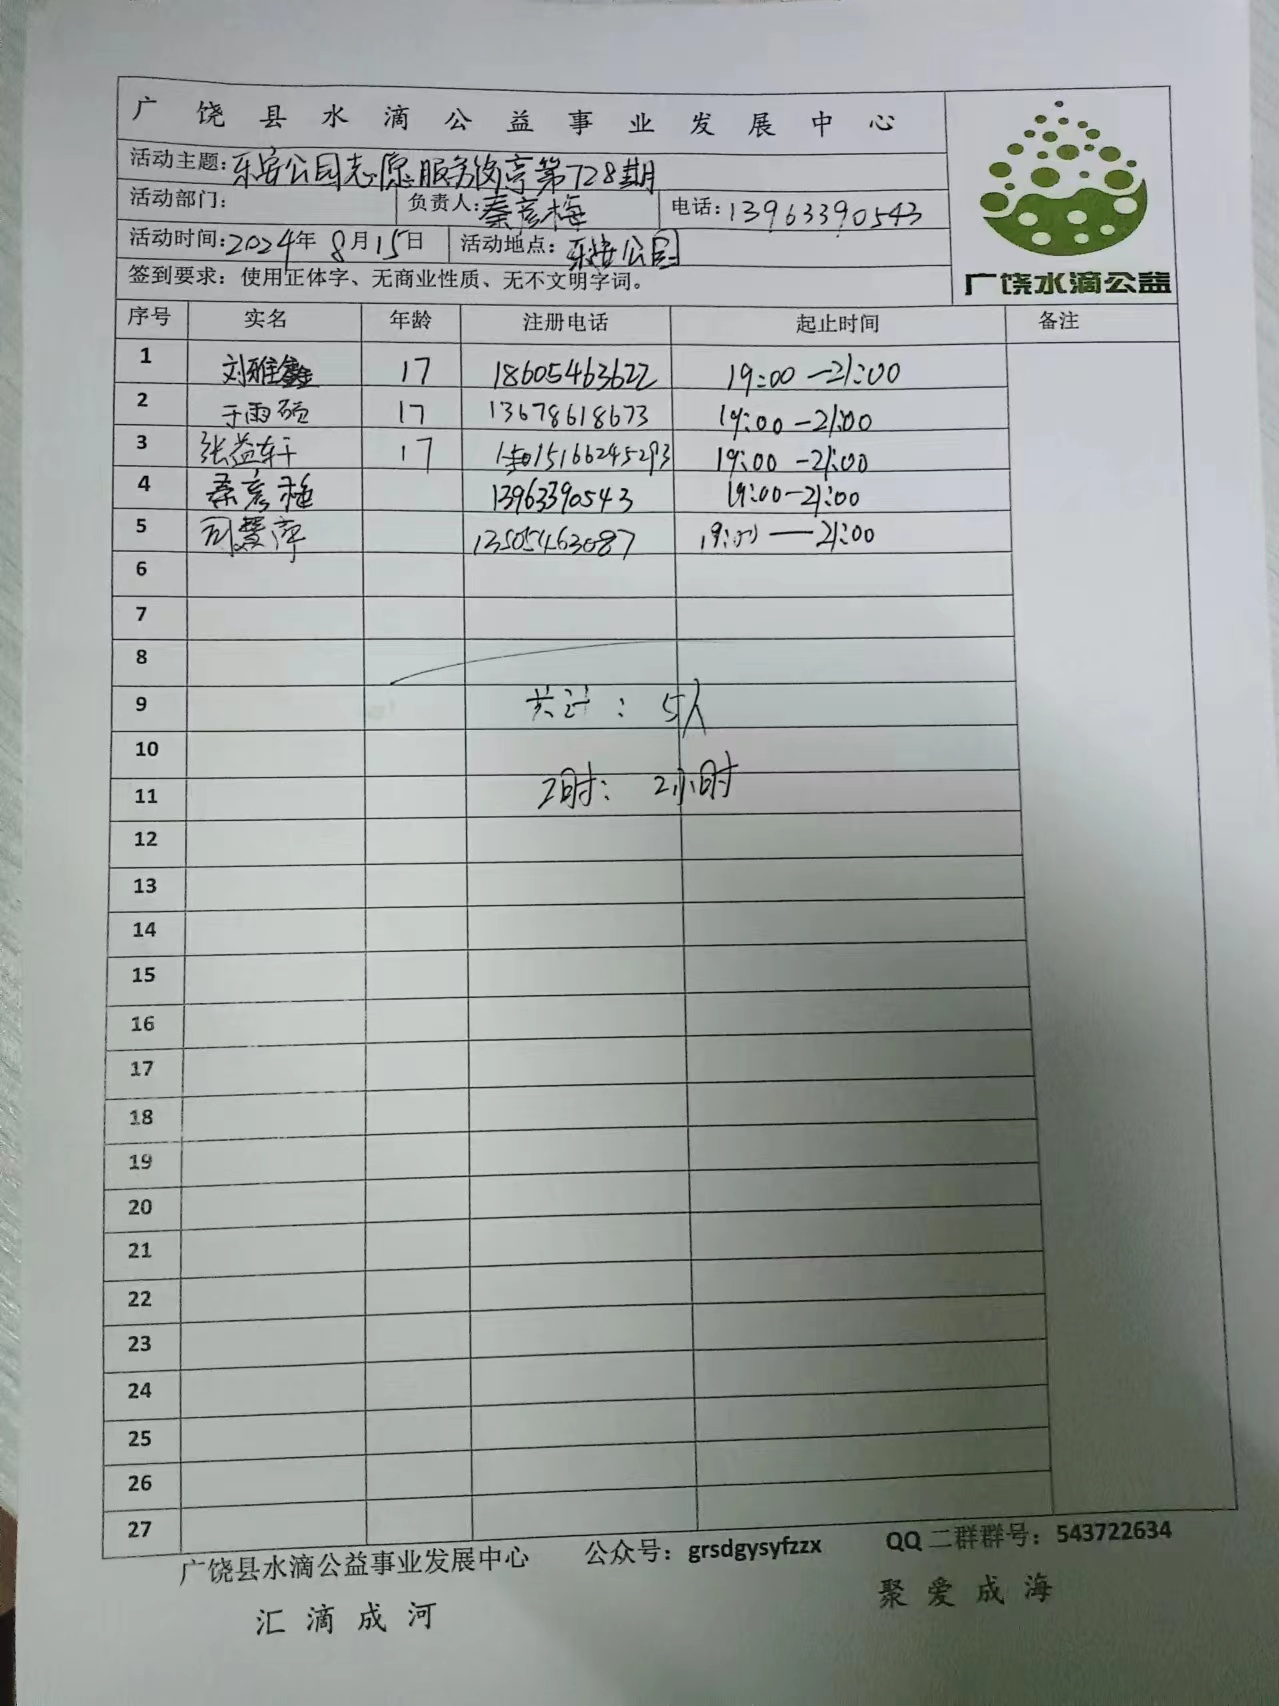 广饶县水滴公益事业发展中心
广饶水滴公益
活动主题：乐安公园志愿服务岗亭第728期
活动部门： 负责人：秦彦梅 电话：13963390543
活动时间：2024年8月15日 活动地点：乐安公园
签到要求：使用正体字、无商业性质、无不文明字词。
序号 实名 年龄 注册电话 起止时间 备注
1 刘雅鑫 17 18605463622 19:00—21:00
2 于雨硕 17 13678618673 19:00—21:00
3 张益轩 17 15166245293 19:00—21:00
4 秦彦梅 13963390543 19:00—21:00
5 司慧萍 13505463087 19:00—21:00
6
7
8
9 共计：5人
10
11 工时：2小时
12
13
14
15
16
17
18
19
20
21
22
23
24
25
26
27
广饶县水滴公益事业发展中心 公众号：grsdgysyfzzx QQ二群群号：543722634
汇滴成河 聚爱成海